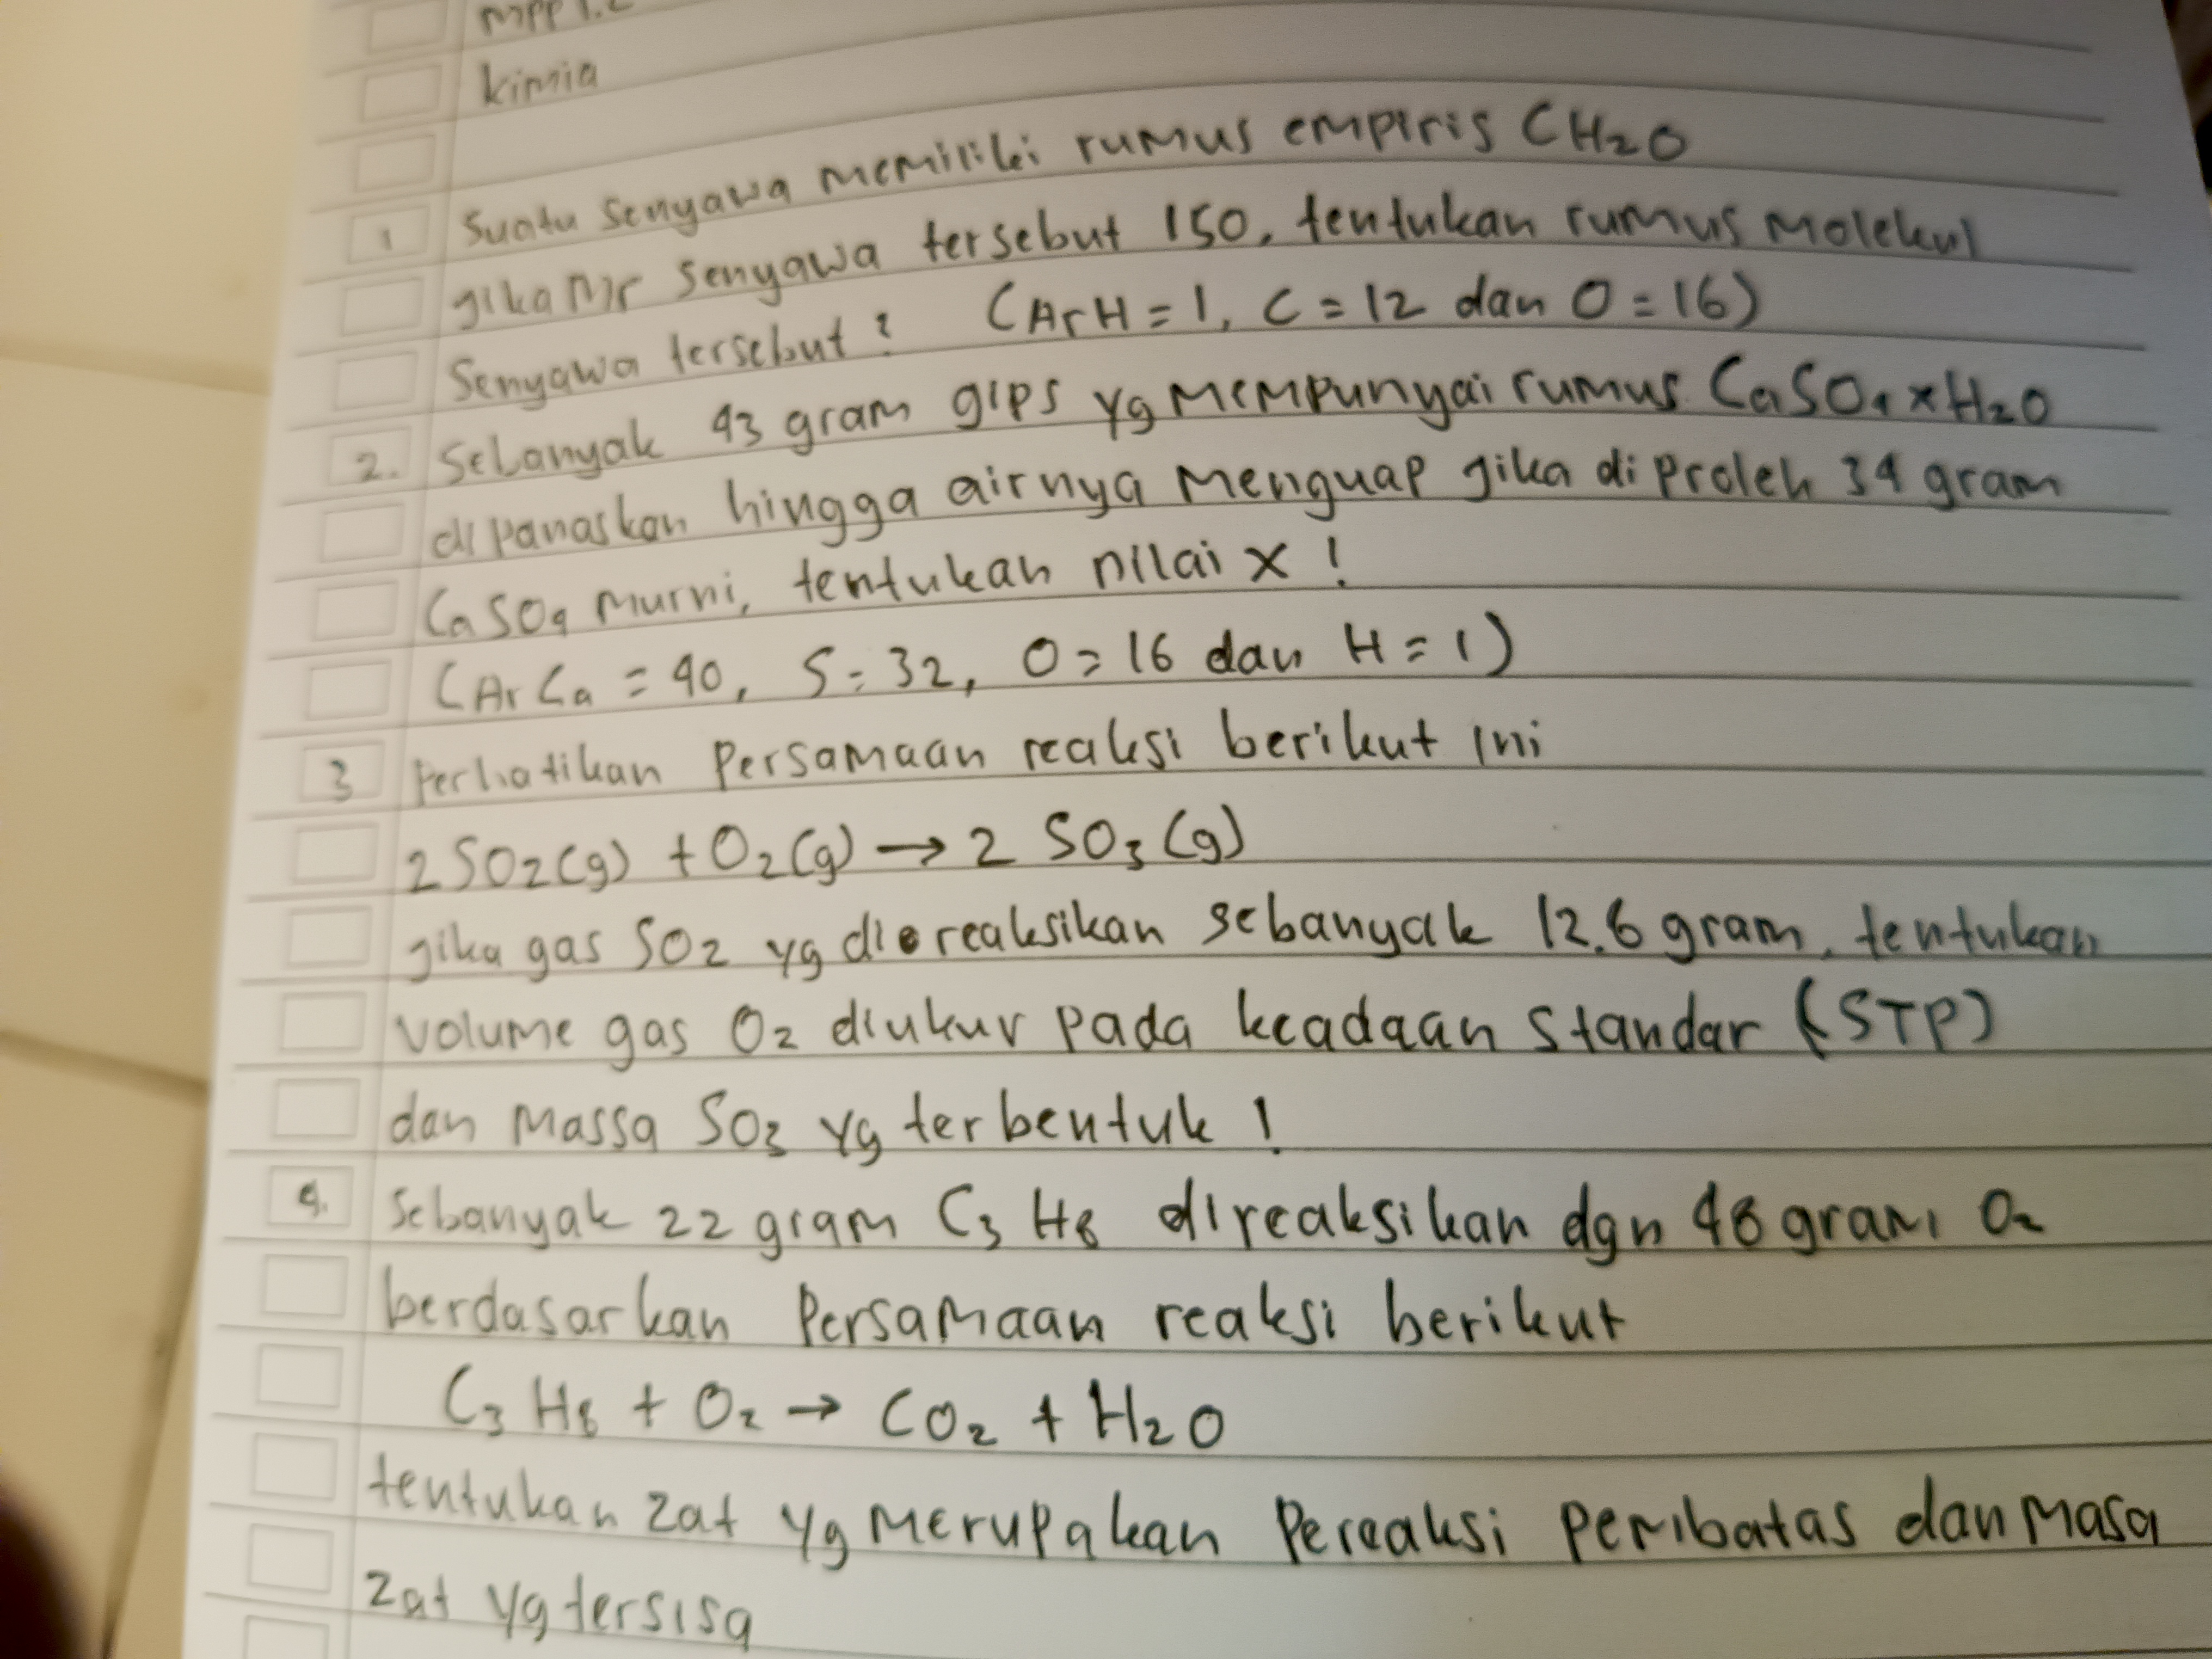 MPP 1.2
kimia
1 Suatu senyawa memiliki rumus empiris CH₂O
jika Mr senyawa tersebut 150, tentukan rumus molekul
senyawa tersebut? (Ar H = 1, C = 12 dan O = 16)
2. Sebanyak 43 gram gips yg mempunyai rumus CaSO₄ xH₂O
dipanaskan hingga airnya menguap jika diproleh 34 gram
CaSO₄ murni, tentukan nilai x !
(Ar Ca = 40, S = 32, O = 16 dan H = 1)
3 Perhatikan Persamaan reaksi berikut ini
2SO₂(g) + O₂(g) → 2 SO₃ (g)
jika gas SO₂ yg direaksikan sebanyak 12.6 gram, tentukan
volume gas O₂ diukur pada keadaan standar (STP)
dan massa SO₃ yg terbentuk !
4. Sebanyak 22 gram C₃ H₈ direaksikan dgn 48 gram O₂
berdasarkan Persamaan reaksi berikut
C₃ H₈ + O₂ → CO₂ + H₂O
tentukan zat yg merupakan Pereaksi pembatas dan masa
zat yg tersisa